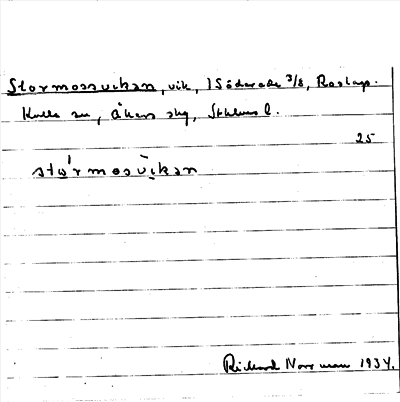 Stormossvikan, vik, 1 Söderede 3/8, Roslags-
Kulla sn, Åkers skg, Sthlms l.
25
stω'rmosvìkan
Rickard Norrman 1934.